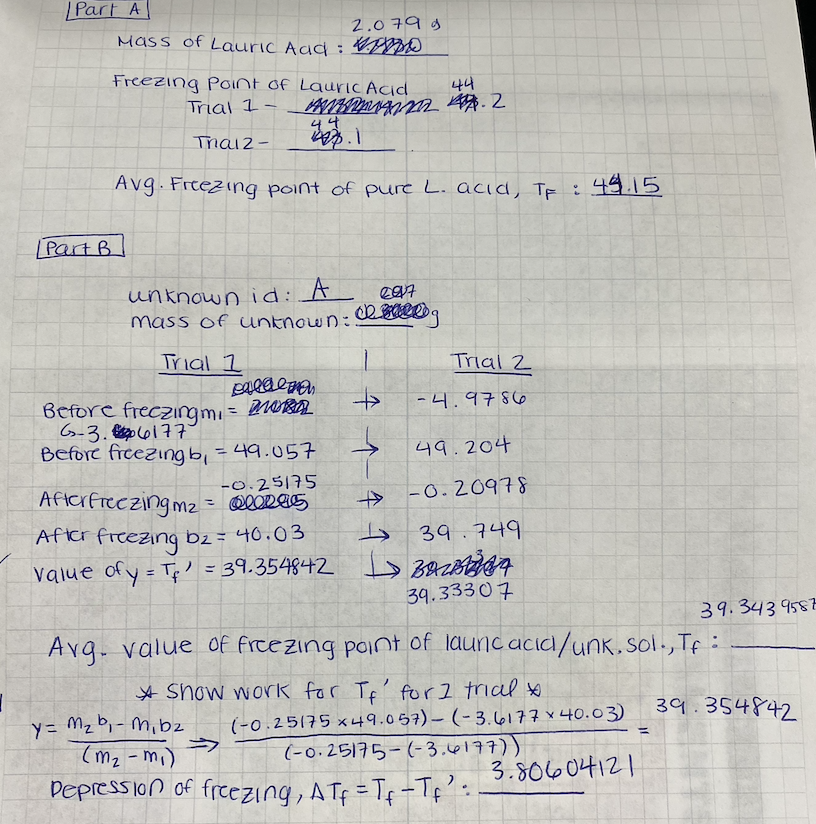 Part A
2.079 g
Mass of Lauric Acid :
Freezing Point of Lauric Acid
Trial 1 - 44.2
Trial 2 - 44.1
Avg. Freezing point of pure L. acid, TF : 44.15
Part B
unknown id: A
mass of unknown: g
Trial 1 | Trial 2
Before freezing m₁ = → -4.9786
↳-3.6177
Before freezing b₁ = 49.057 → 49.204
-0.25175
After freezing m₂ = → -0.20978
After freezing b₂ = 40.03 ↳ 39.749
Value of y = Tf' = 39.354842 ↳
39.33307
39.3439587
Avg. value of freezing point of lauric acid/unk. sol., Tf :
* Show work for Tf' for 1 trial *
y = m₂b₁ - m₁b₂ / (m₂ - m₁) ⇒ (-0.25175 × 49.057) - (-3.6177 × 40.03) / (-0.25175 - (-3.6177)) = 39.354842
Depression of freezing, ΔTf = Tf - Tf' : 3.80604121